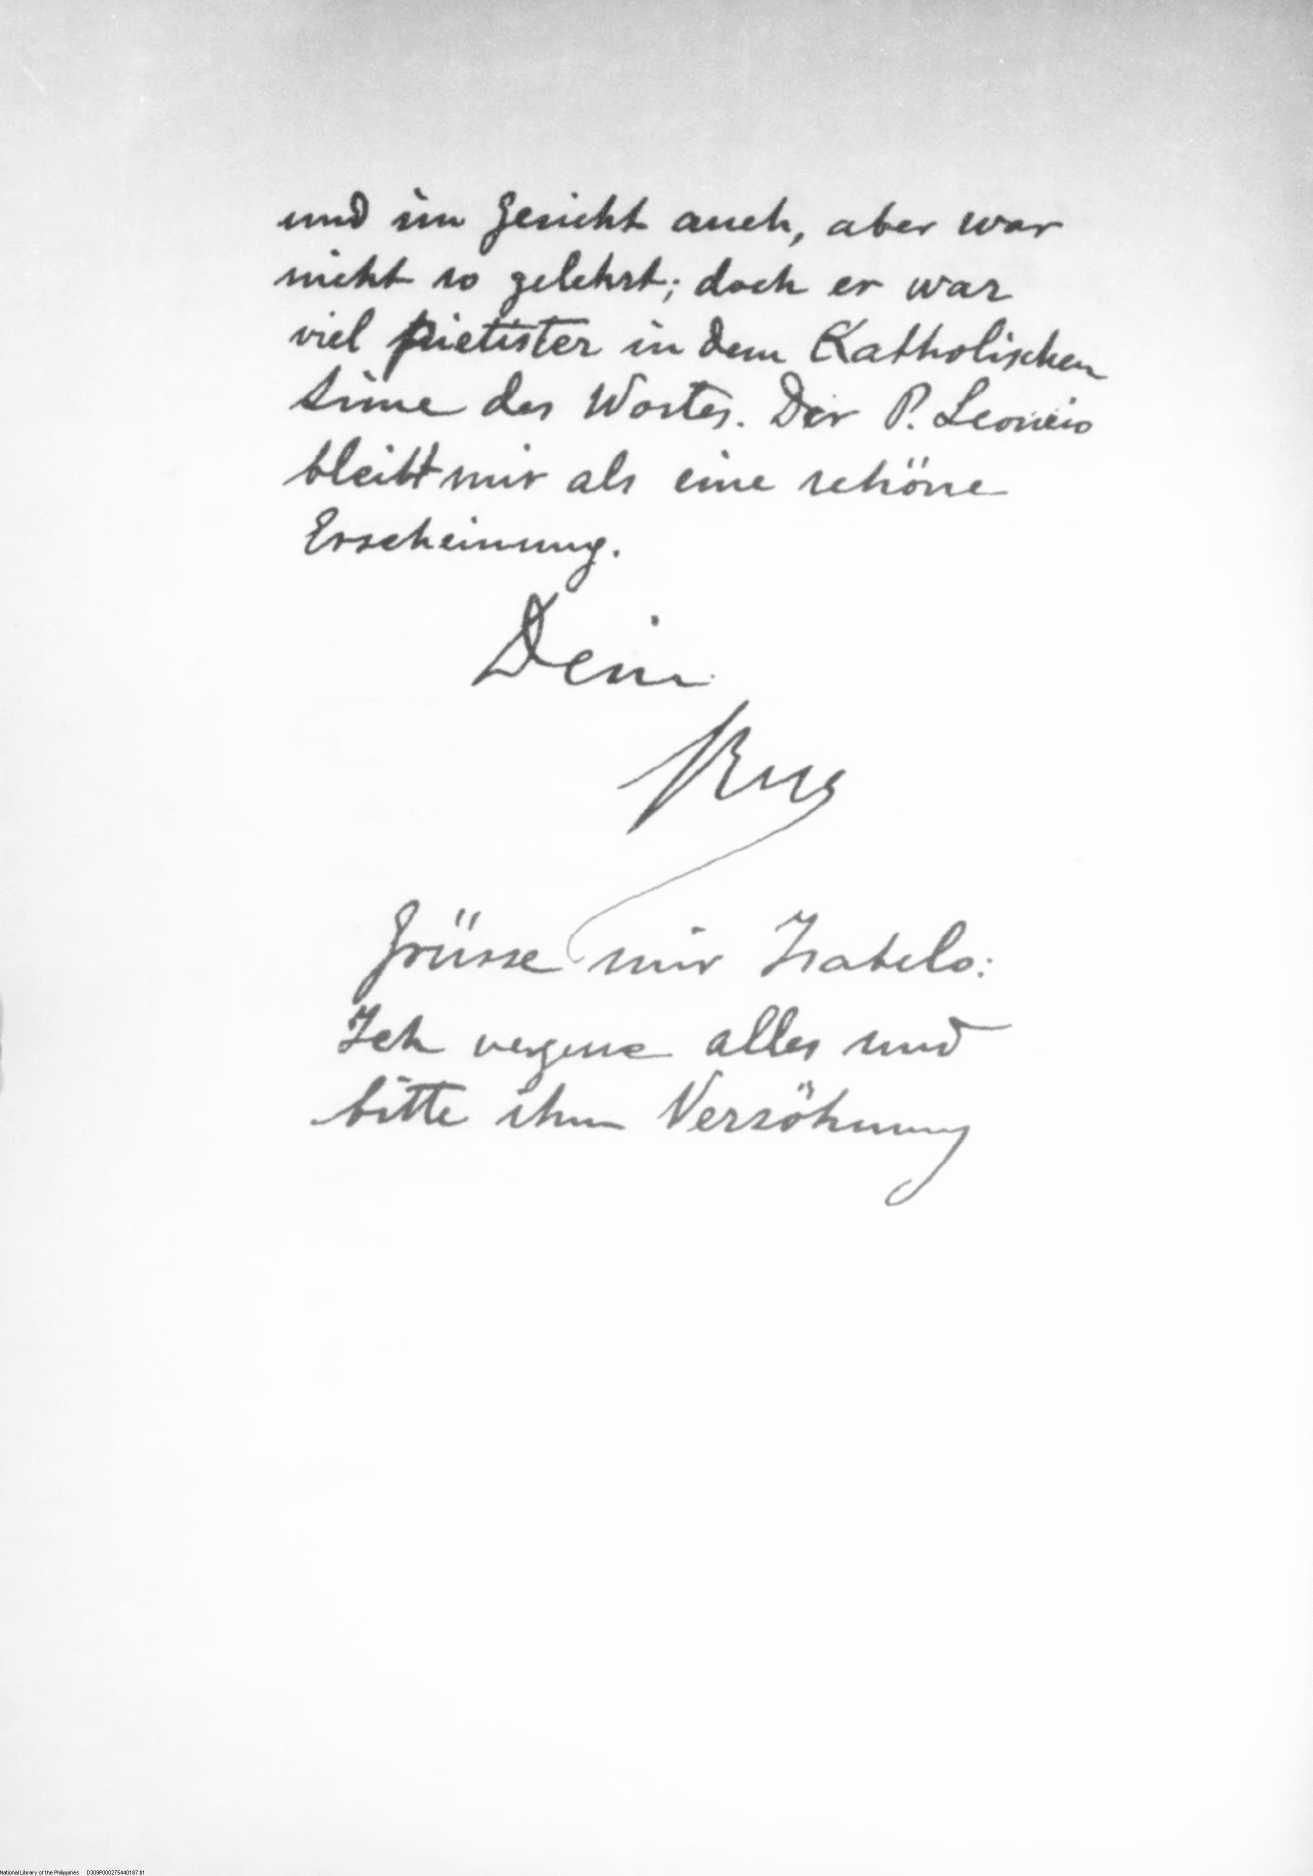 und im Gesicht auch, aber war
nicht so gelehrt; doch er war
viel pietister in dem Katholischen
Sinne des Wortes. Der P. Leoncio
bleibt mir als eine schöne
Erscheinung.
Dein
Grüsse mir Isabelo:
Ich vergesse alles und
bitte ihm Versöhnung
National Library of the Philippines D309P000275440187.tif